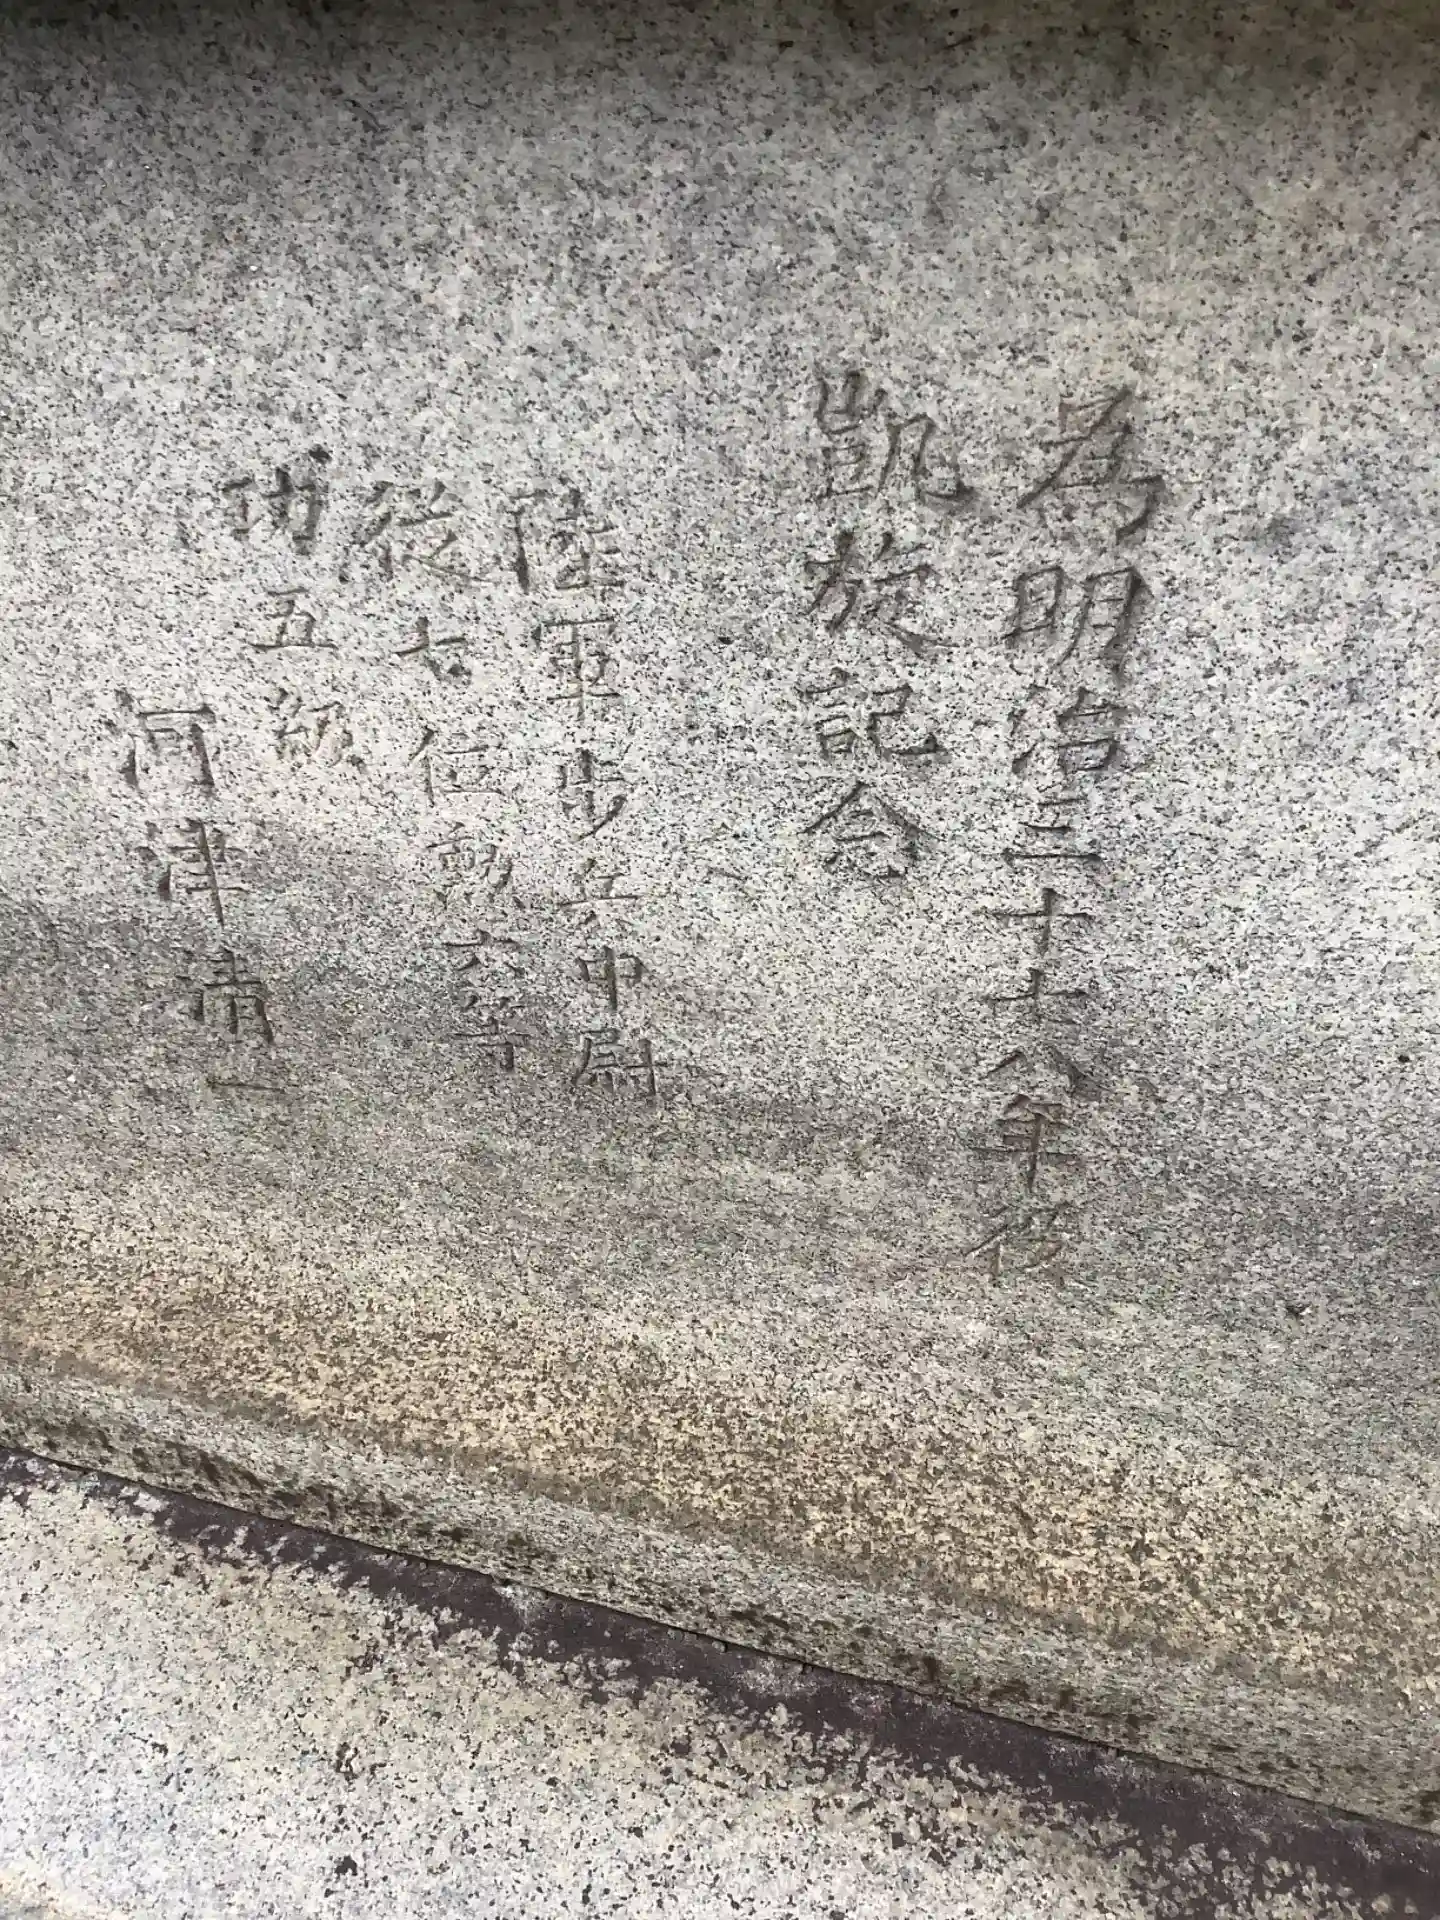 為明治三十七八年役
凱旋記念
陸軍歩兵中尉
従七位勲六等
功五級
河津清一